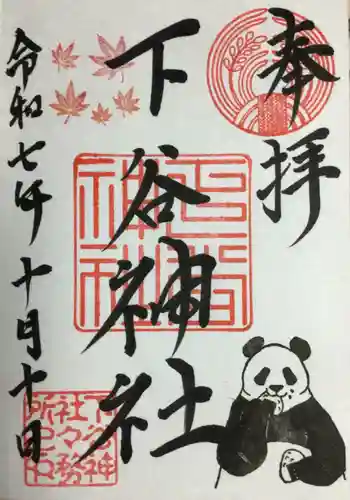 奉拝
下谷神社
令和七年十月十日
下谷神社
下谷神
社々務
所之印